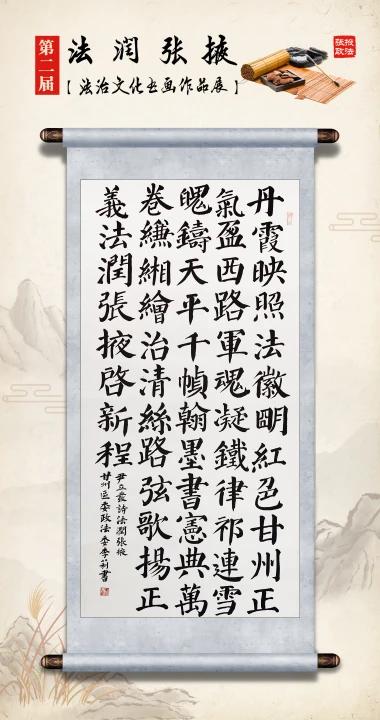 第二届
法润张掖
【法治文化书画作品展】
张掖政法
丹霞映照法徽明紅邑甘州正
氣盈西路軍魂凝鐵律祁連雪
魄鑄天平千幀翰墨書憲典萬
卷縑緗繪治清絲路弦歌揚正
義法潤張掖啓新程
詩法潤張掖
甘州區委政法委李莉書